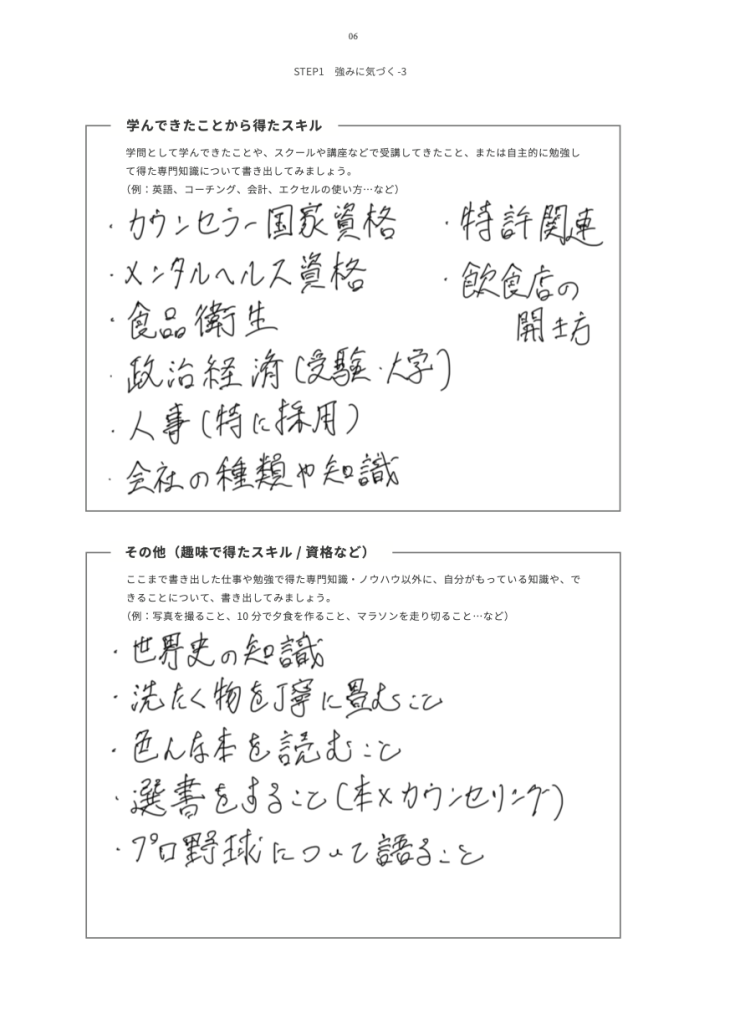 06
STEP1 強みに気づく-3
学んできたことから得たスキル
学問として学んできたことや、スクールや講座などで受講してきたこと、または自主的に勉強し
て得た専門知識について書き出してみましょう。
（例：英語、コーチング、会計、エクセルの使い方…など）
・カウンセラー国家資格
・メンタルヘルス資格
・食品衛生
・政治経済(受験・大学)
・人事(特に採用)
・会社の種類や知識
・特許関連
・飲食店の
開き方
その他（趣味で得たスキル / 資格など）
ここまで書き出した仕事や勉強で得た専門知識・ノウハウ以外に、自分がもっている知識や、で
きることについて、書き出してみましょう。
（例：写真を撮ること、10 分で夕食を作ること、マラソンを走り切ること…など）
・世界史の知識
・洗たく物を丁寧に畳むこと
・色んな本を読むこと
・選書をすること(本×カウンセリング)
・プロ野球について語ること